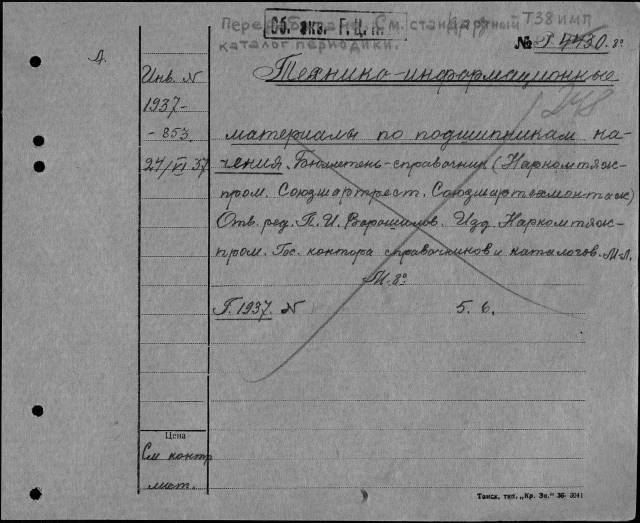 Об. экз. Г.Ц.П.
Пере См. стандартный Т38 имп
каталог периодики.
№ Р. 4420. 8º
Инв. N
1937-
-853.
27/VI 37
Технико-информационные
248
материалы по подшипникам ка-
чения. Бюллетень-справочник (Наркомтяж-
пром. Союзшартрест. Союзшартехмонтаж)
Отв. ред. П. И. Ворошилов. Изд. Наркомтяж-
пром. Гос. контора справочников и каталогов. М-Л.
8º
Г. 1937. N 5. 6.
Цена
См контр
лист.
Томск, тип. „Кр. Зн." 36- 3041